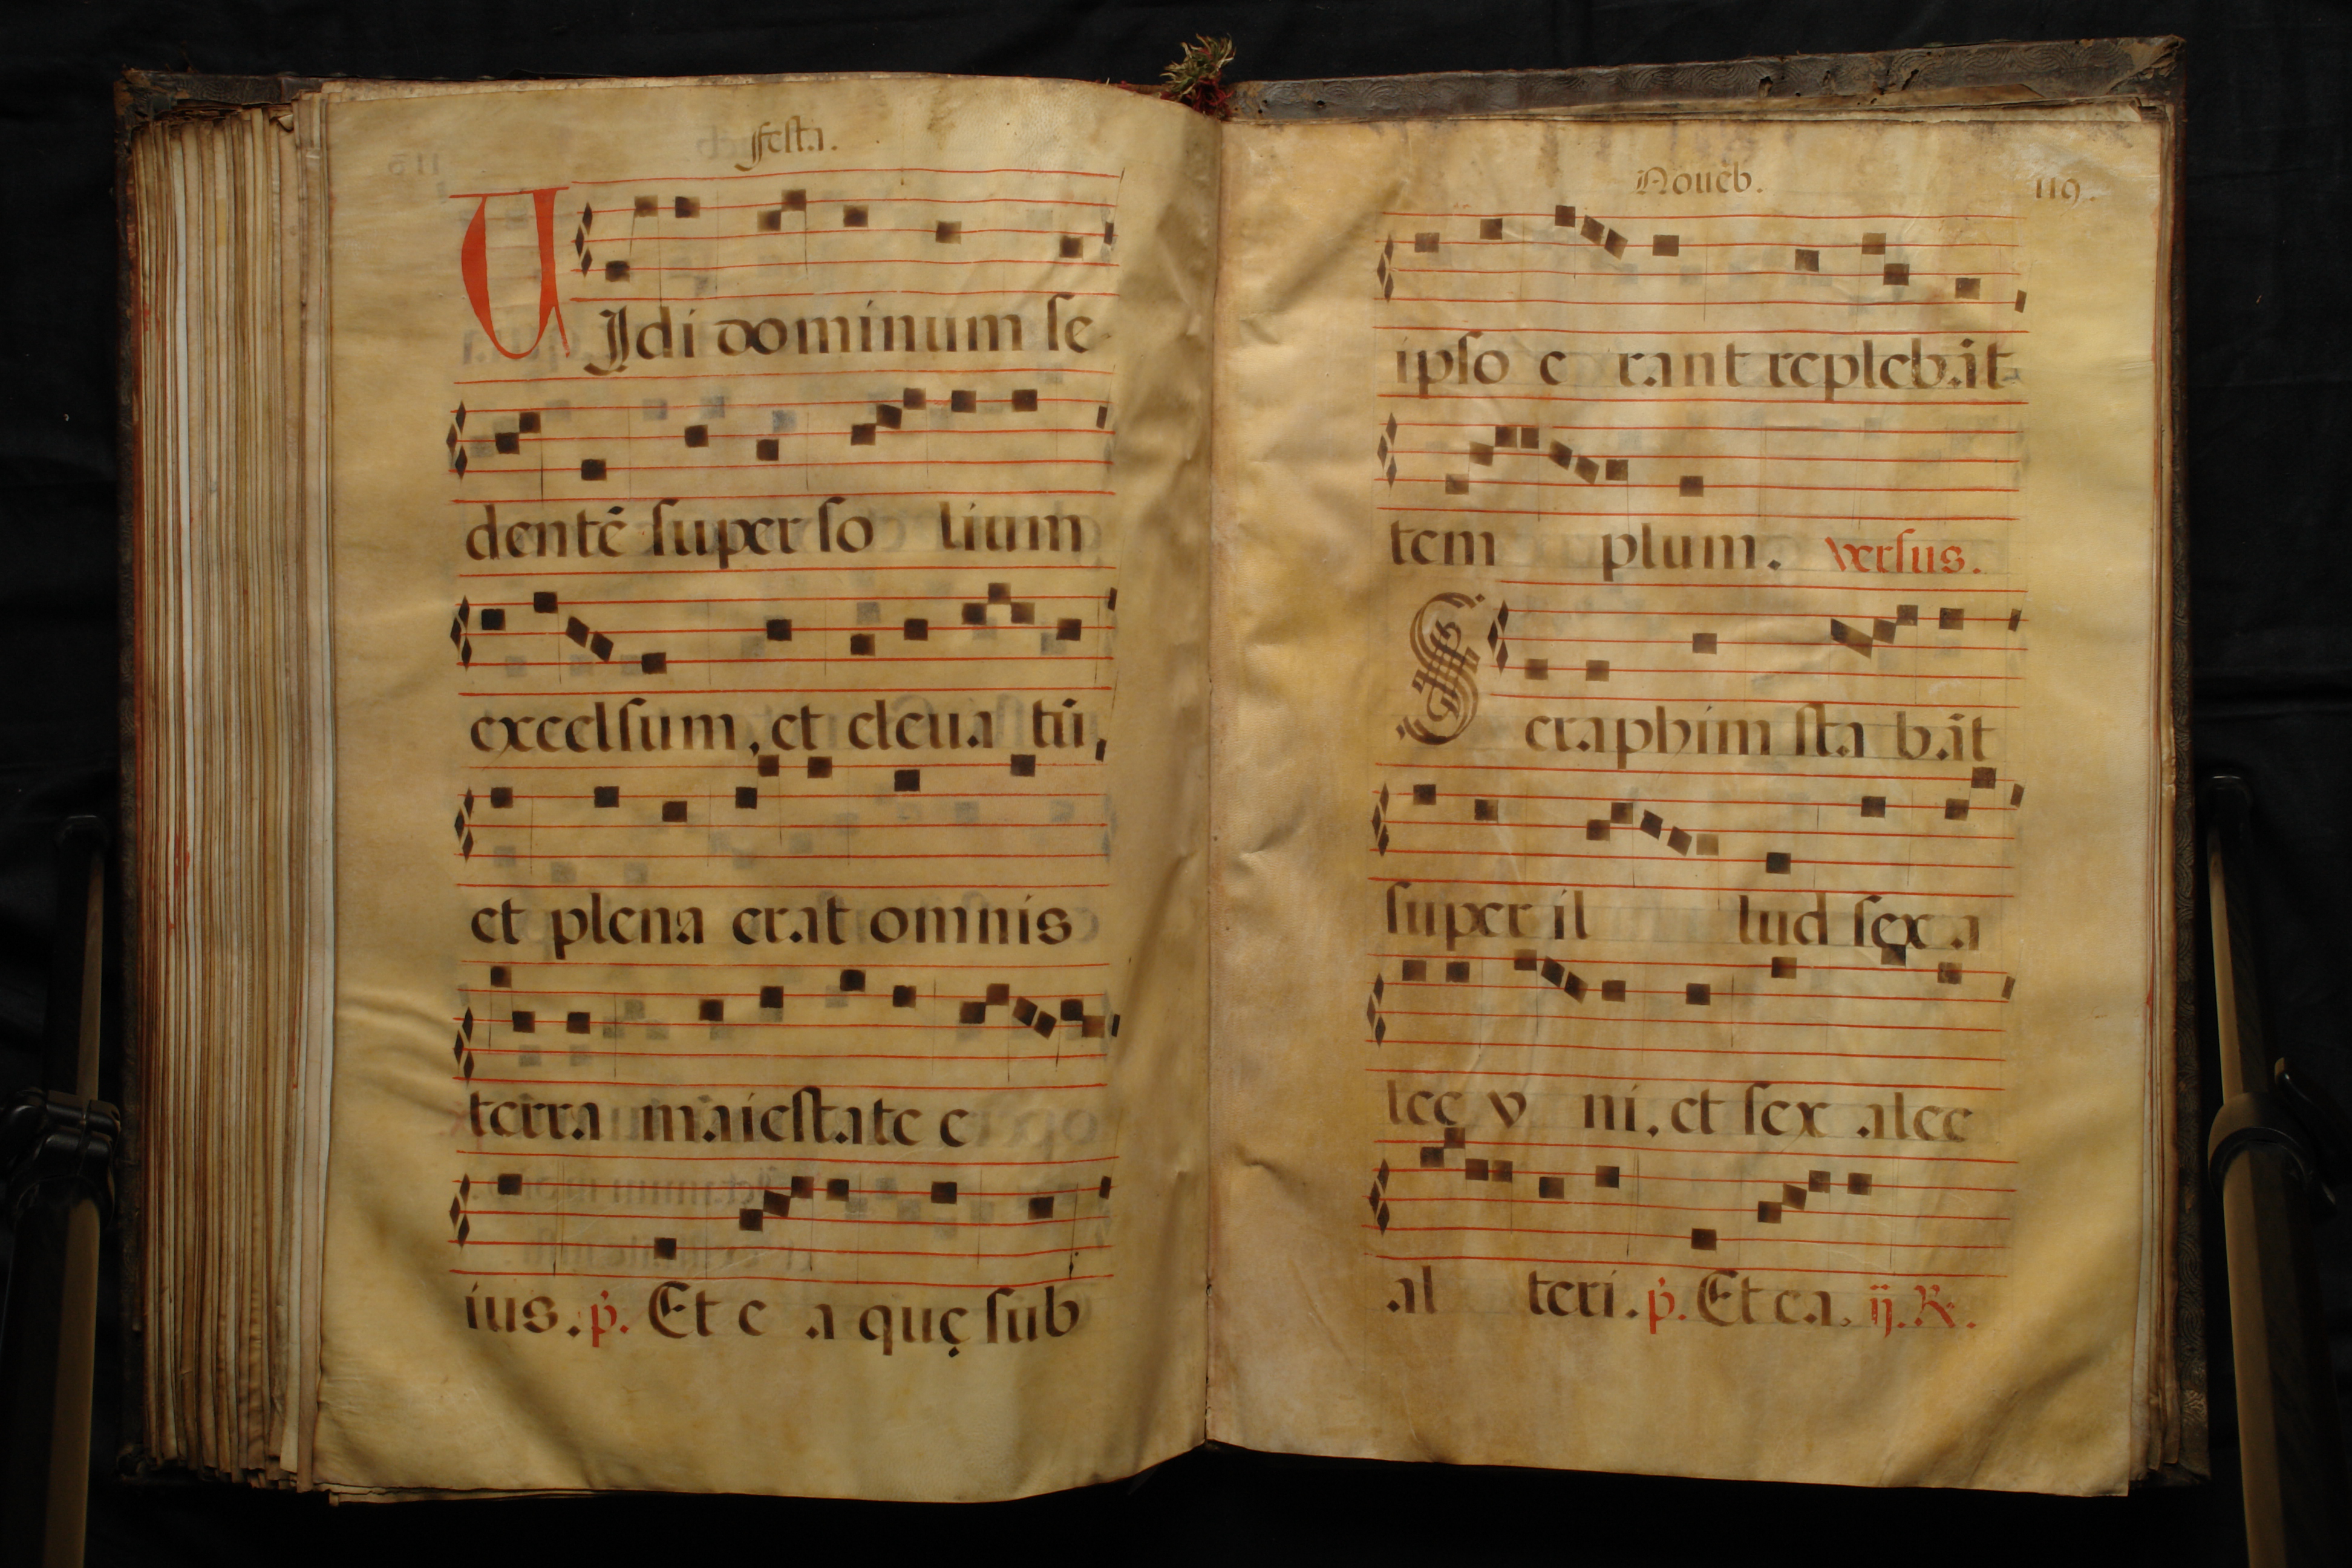 ffesta.
UIdi dominum se
dentē super so lium
excelsum, et eleua tū,
et plena erat omnis
terra maiestate e
ius. p̄. Et e a quę sub
Nouēb. 119.
ipso e rant replebāt
tem plum. versus.
Seraphim sta bāt
super il lud sex a
lee v ni, et sex alee
al teri. p̄. Et ea. ij. R.